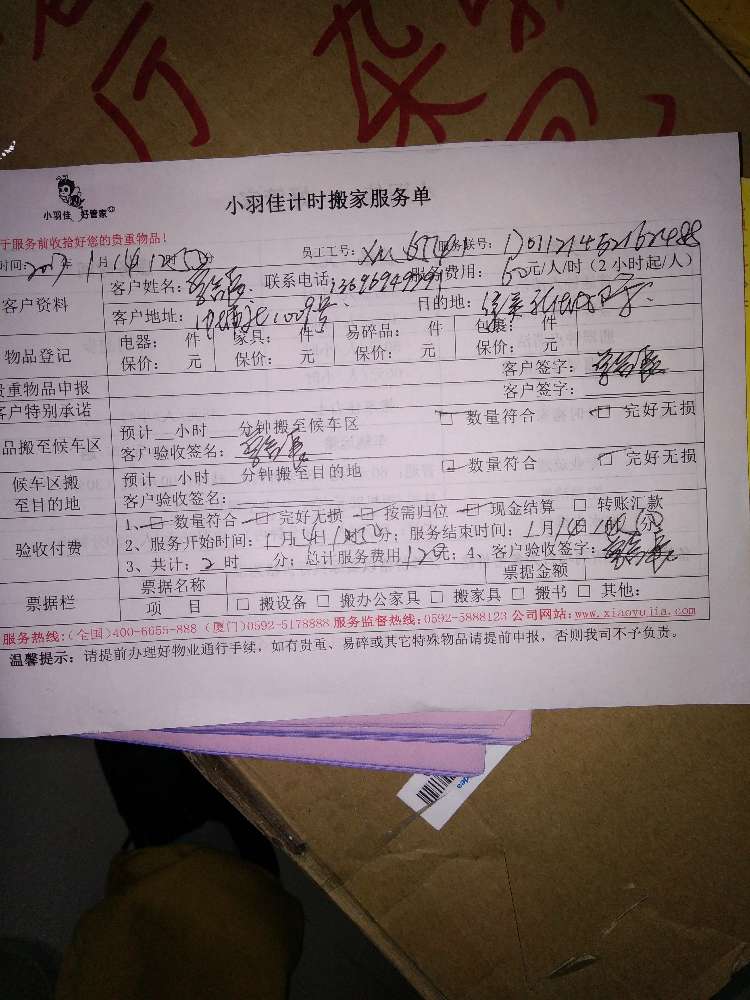 小羽佳 好管家
小羽佳计时搬家服务单
于服务前收拾好您的贵重物品！
时间：2017年1月14日12时 分 员工工号： 服务联号：
客户资料 客户姓名： 联系电话： 服务费用：60元/人/时（2小时起/人）
客户地址： 1009号 目的地：
物品登记 电器： 件 家具： 件 易碎品： 件 包裹： 件
保价： 元 保价： 元 保价： 元 保价： 元
贵重物品申报 客户签字：
客户特别承诺 客户签字：
品搬至候车区 预计 小时 分钟搬至候车区 □ 数量符合 □ 完好无损
客户验收签名：
候车区搬至目的地 预计 小时 分钟搬至目的地 □ 数量符合 □ 完好无损
客户验收签名：
验收付费 1、□ 数量符合 □ 完好无损 □ 按需归位 □ 现金结算 □ 转账汇款
2、服务开始时间：1月14日 时 分；服务结束时间：1月14日 时 分
3、共计：2时 分；总计服务费用120元；4、客户验收签字：
票据栏 票据名称 票据金额
项 目 □ 搬设备 □ 搬办公家具 □ 搬家具 □ 搬书 □ 其他：
服务热线：（全国）400-6655-888 （厦门）0592-5178888 服务监督热线：0592-5888123 公司网站：www.xiaoyujia.com
温馨提示：请提前办理好物业通行手续，如有贵重、易碎或其它特殊物品请提前申报，否则我司不予负责。